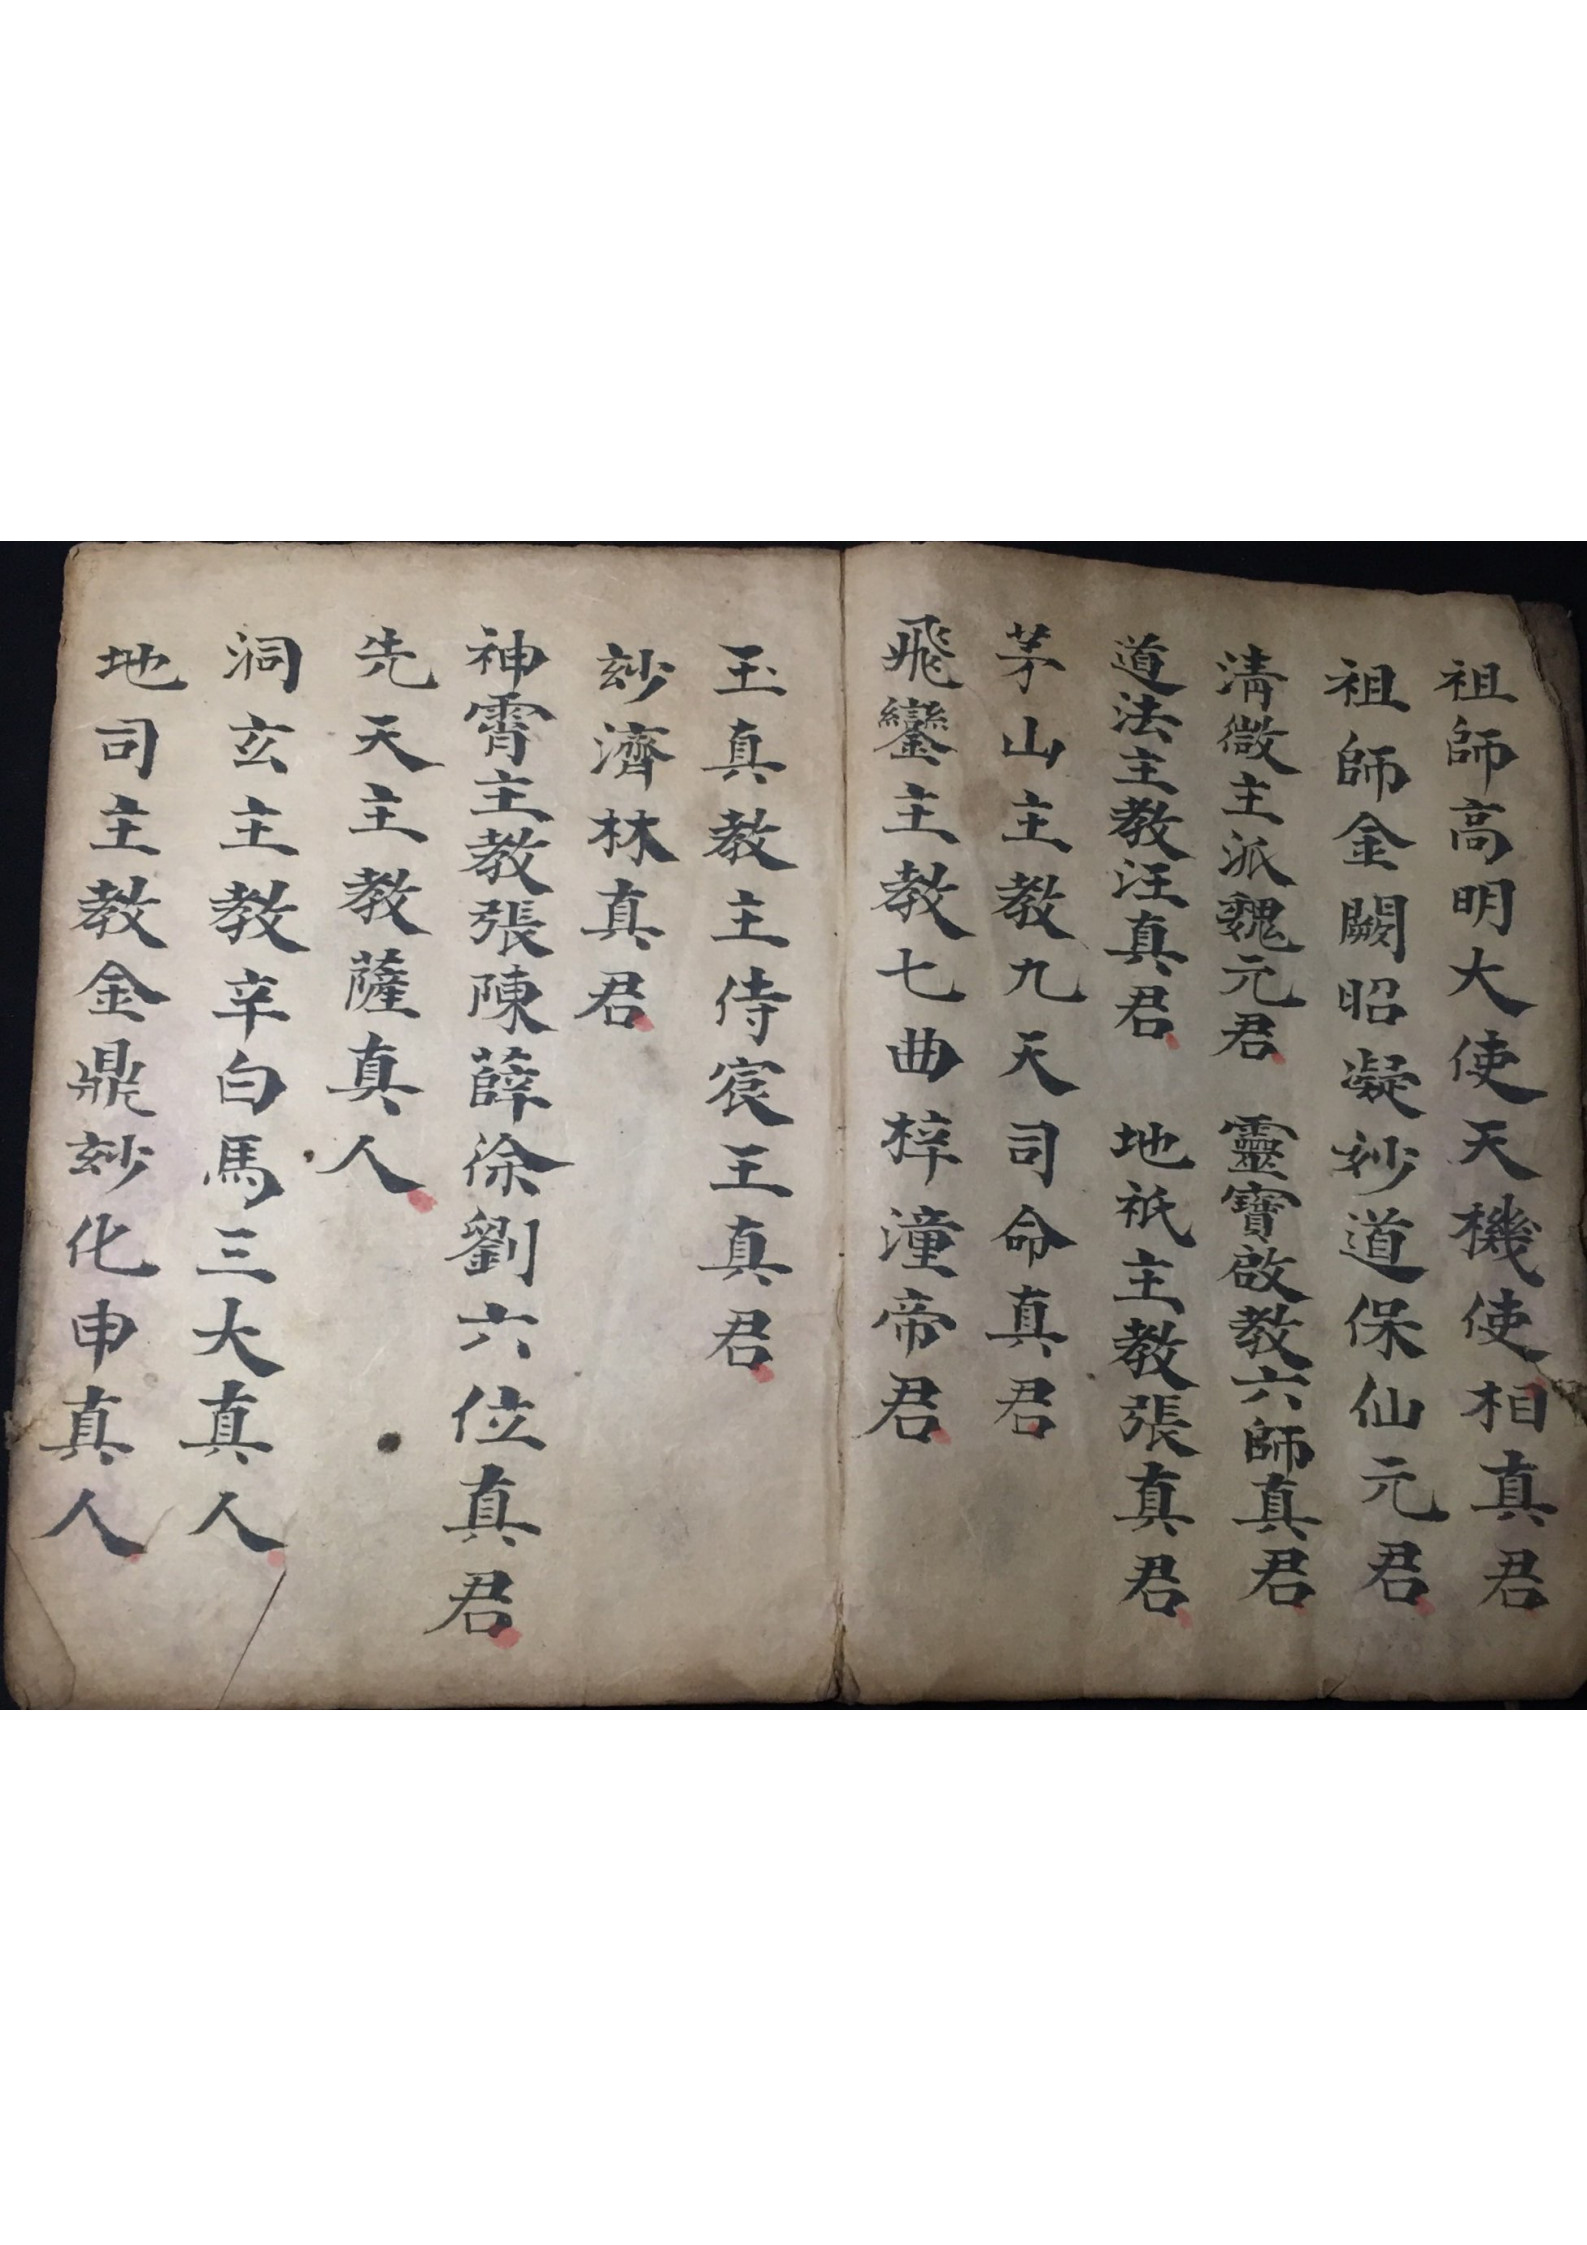 祖師高明大使天機使相真君
祖師金闕昭凝妙道保仙元君
清微主派魏元君　靈寶啟教六師真君
道法主教汪真君　地祇主教張真君
茅山主教九天司命真君
飛鸞主教七曲梓潼帝君
玉真教主侍宸王真君
玅濟林真君
神霄主教張陳薛徐劉六位真君
先天主教薩真人
洞玄主教辛白馬三大真人
地司主教金鼎玅化申真人